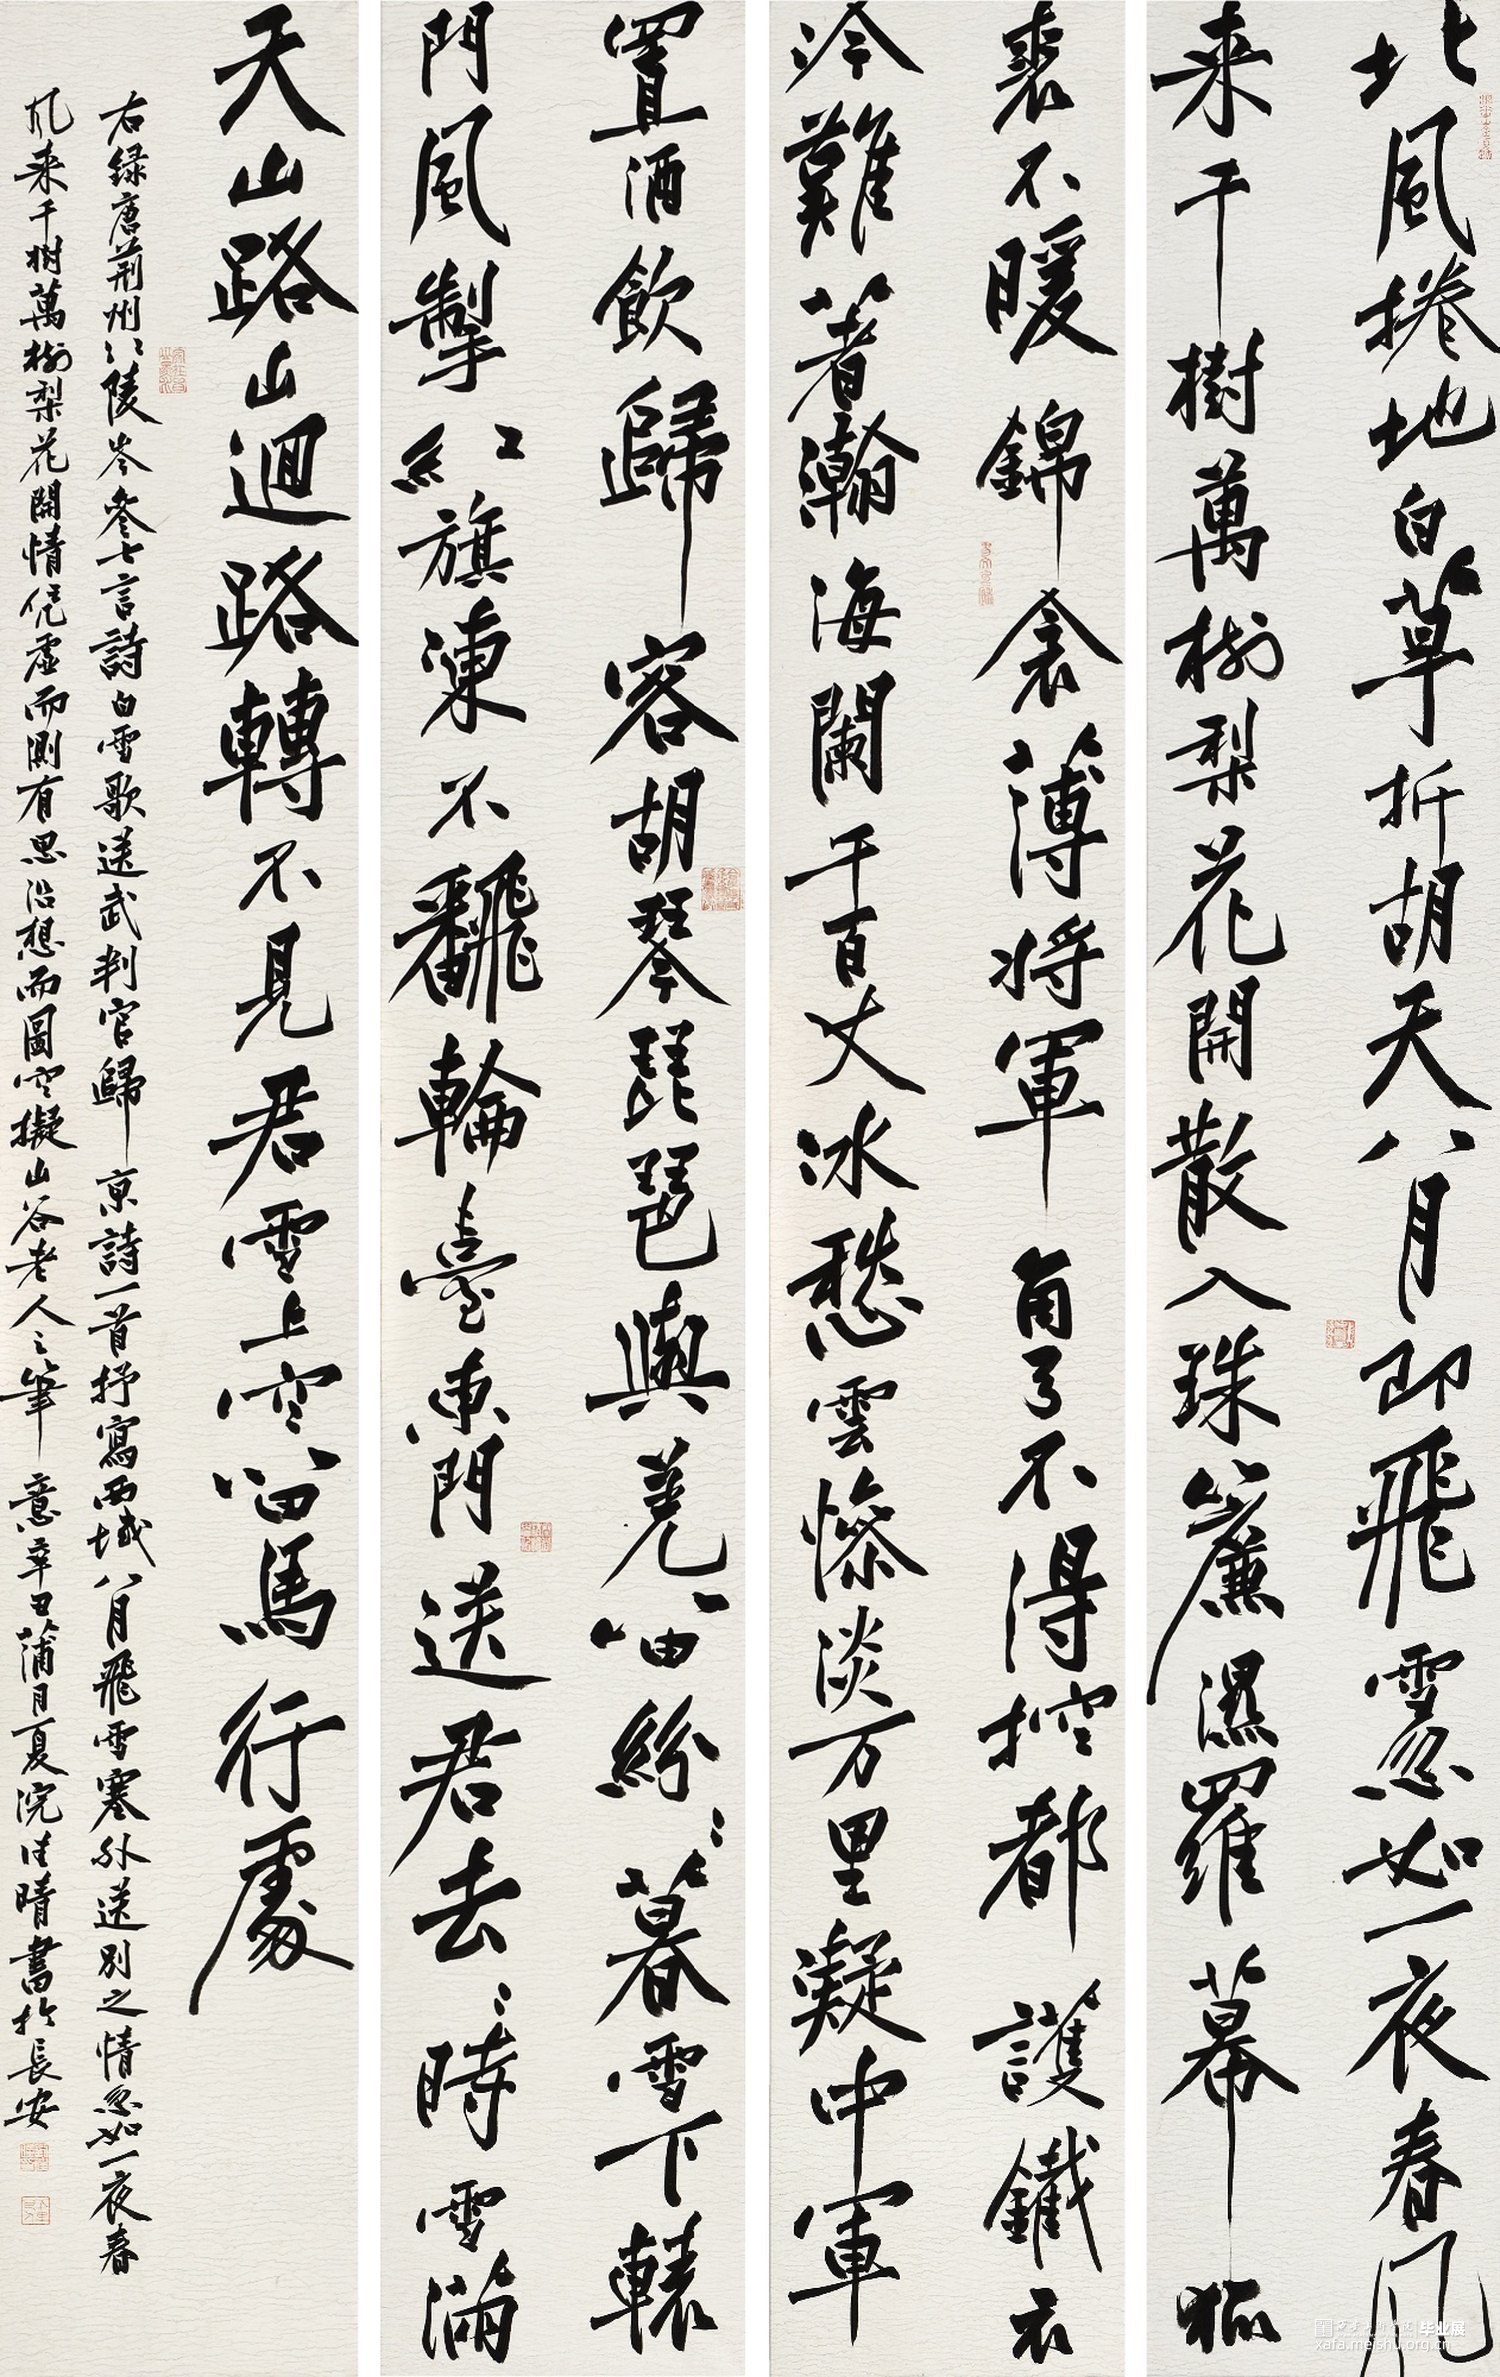 北風捲地白草折胡天八月即飛雪忽如一夜春风
来千樹萬樹梨花開散入珠簾濕羅幕狐
裘不暖錦衾薄將軍角弓不得控都護鐵衣
冷難著瀚海闌干百丈冰愁雲慘淡万里凝中軍
置酒飲歸客胡琴琵琶與羌笛紛〻暮雪下轅
門風掣紅旗凍不翻輪臺東門送君去〻時雪滿
天山路山迴路轉不見君雪上空留馬行處
右録唐荊州江陵岑參七言詩白雪歌送武判官歸京詩一首抒寫西域八月飛雪寒外送別之情忽如一夜春
风来千樹萬樹梨花開情凭虛而測有思沿想而圖空擬山谷老人之筆意辛丑蒲月夏浣佳晴書於長安
毕业展
xafa.meishu.org.cn